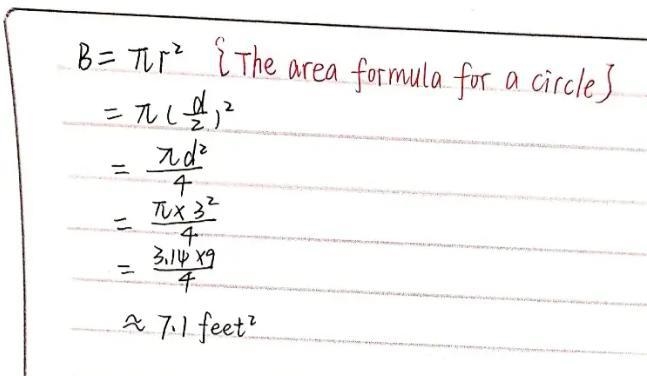 B = πr² {The area formula for a circle}
= π(d/2)²
= πd²/4
= π×3²/4
= 3.14×9/4
≈ 7.1 feet²